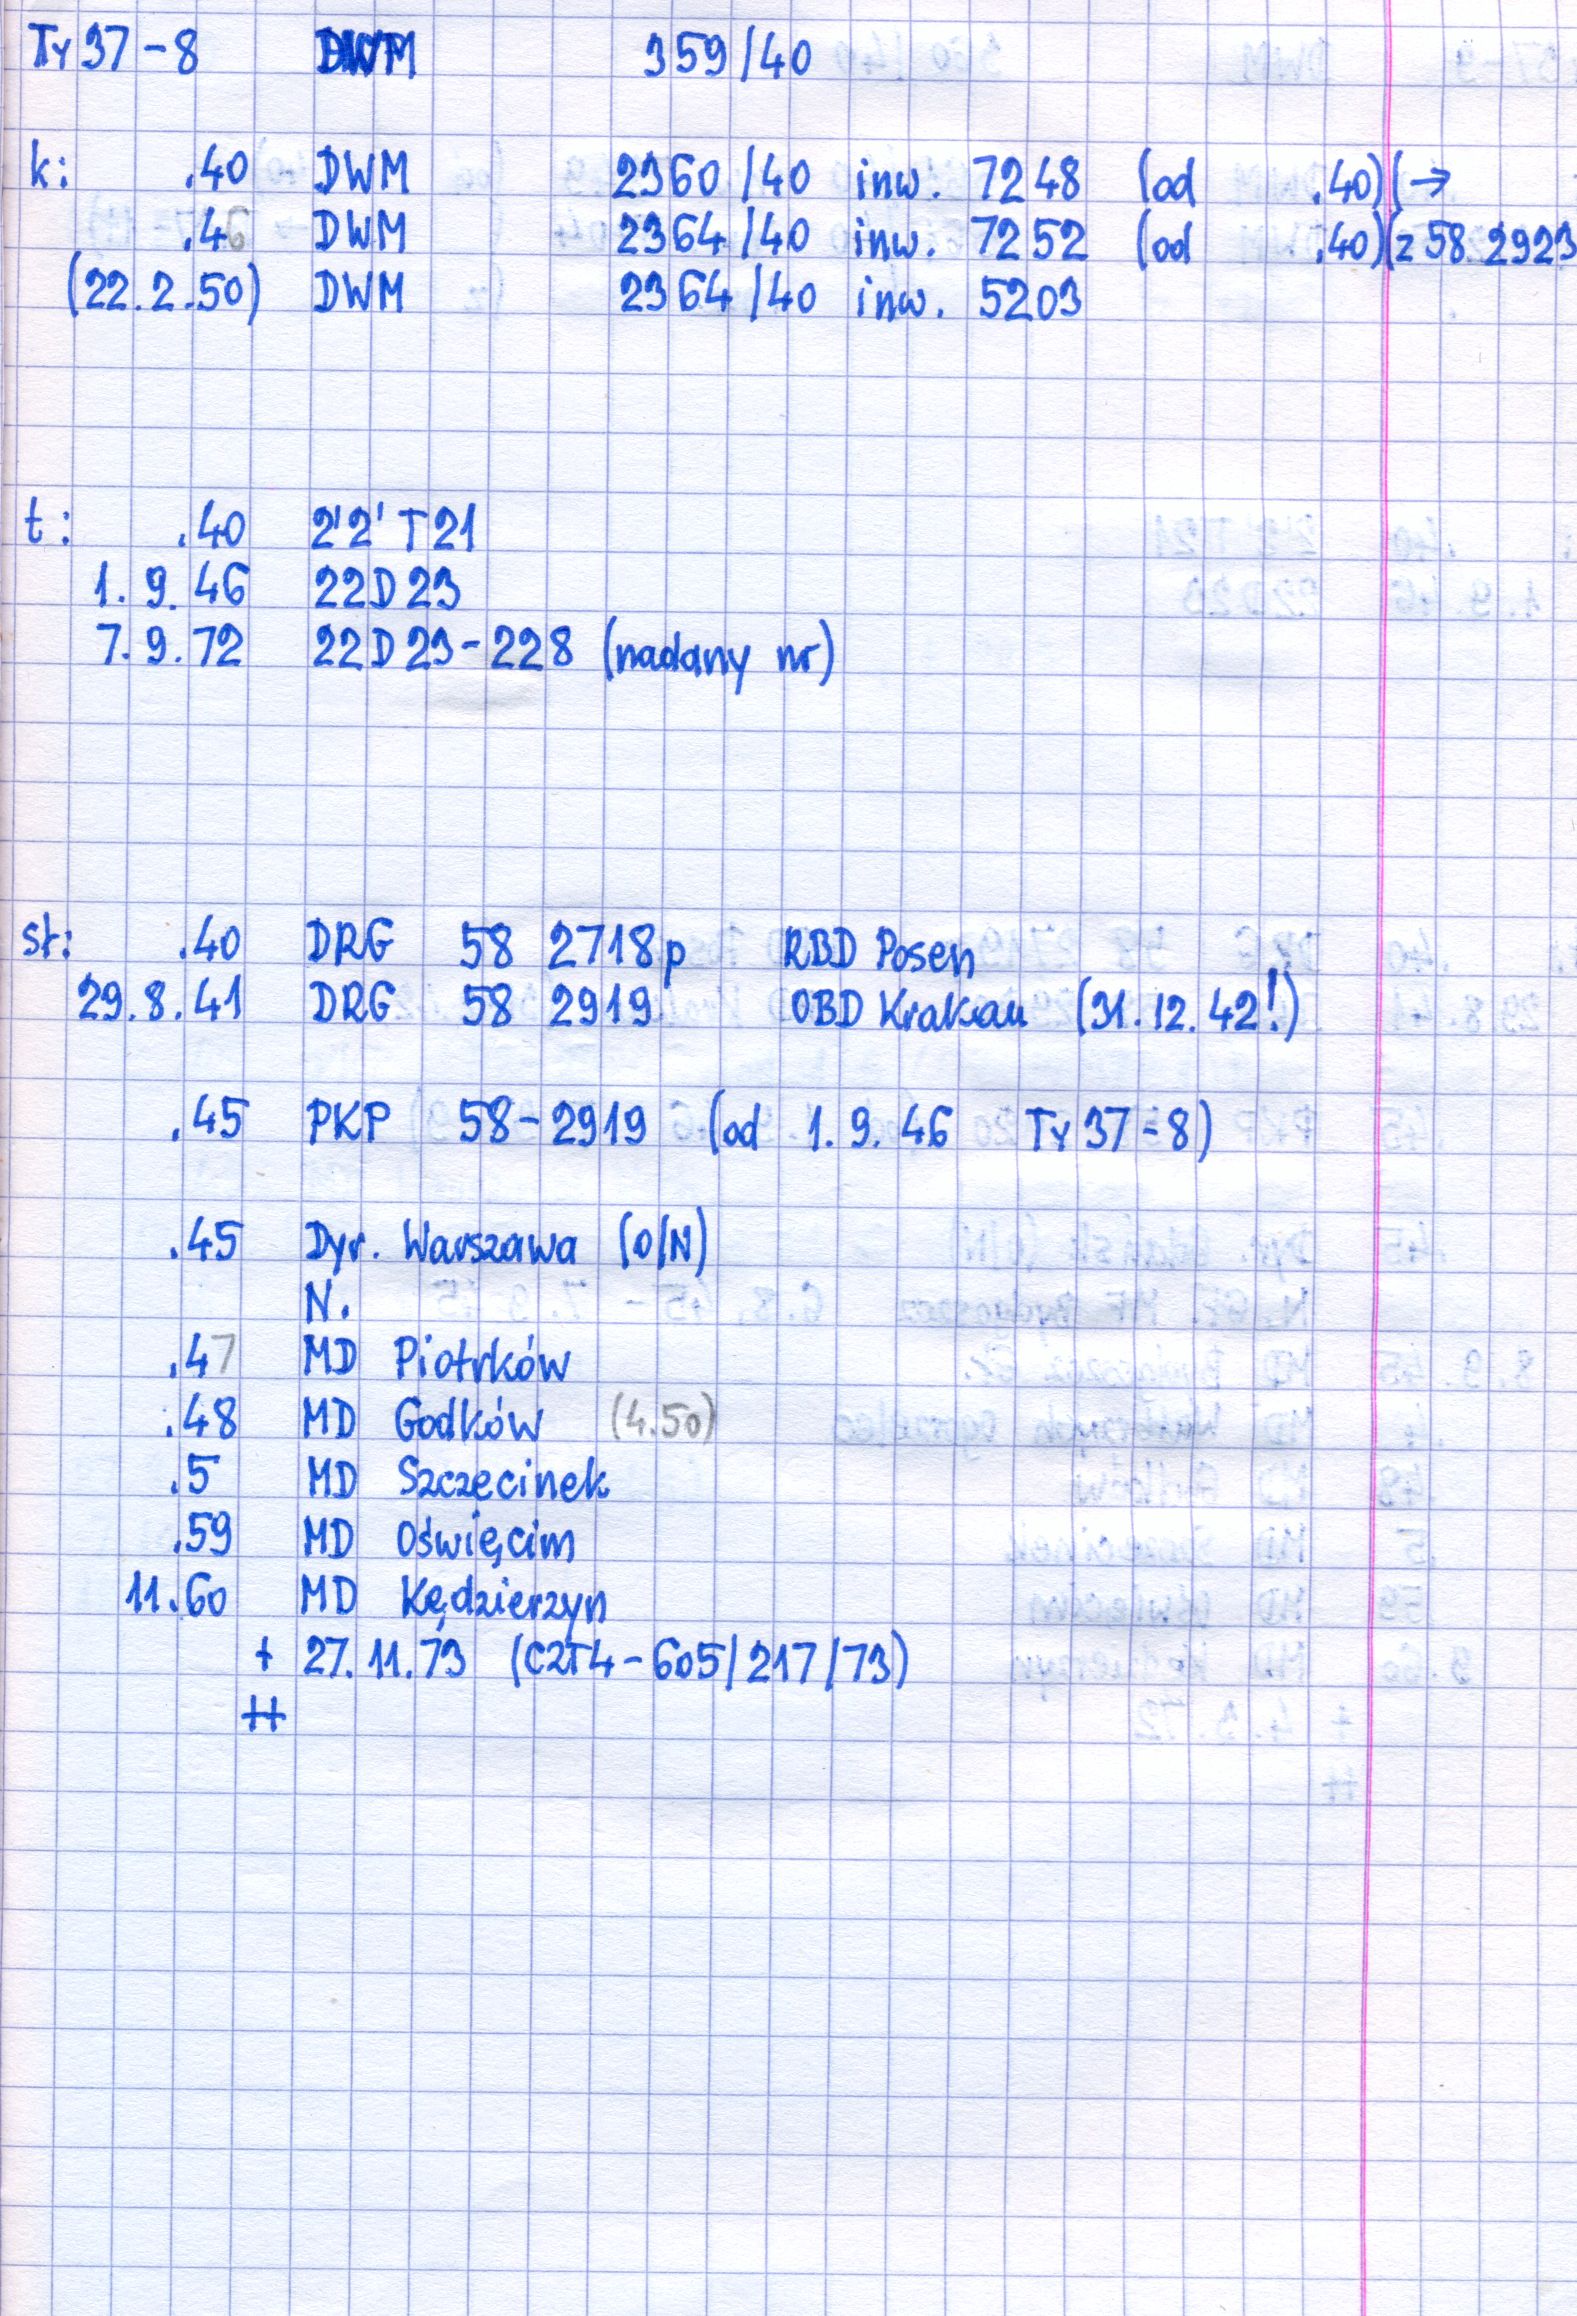 Ty 37-8 DWM 359/40
k: .40 DWM 2360/40 inw. 7248 (od .40)(→
.46 DWM 2364/40 inw. 7252 (od .40)(z 58 2923
(22.2.50) DWM 2364/40 inw. 5203
t: .40 2'2' T21
1.9.46 22D23
7.9.72 22D23-228 (nadany nr)
st: .40 DRG 58 2718p RBD Posen
29.8.41 DRG 58 2919 OBD Krakau (31.12.42!)
.45 PKP 58-2919 (od 1.9.46 Ty 37-8)
.45 Dyr. Warszawa (O/N)
N.
.47 MD Piotrków
.48 MD Godków (4.50)
.5 MD Szczecinek
.59 MD Oświęcim
11.60 MD Kędzierzyn
+ 27.11.73 (CZT4-605/217/73)
++